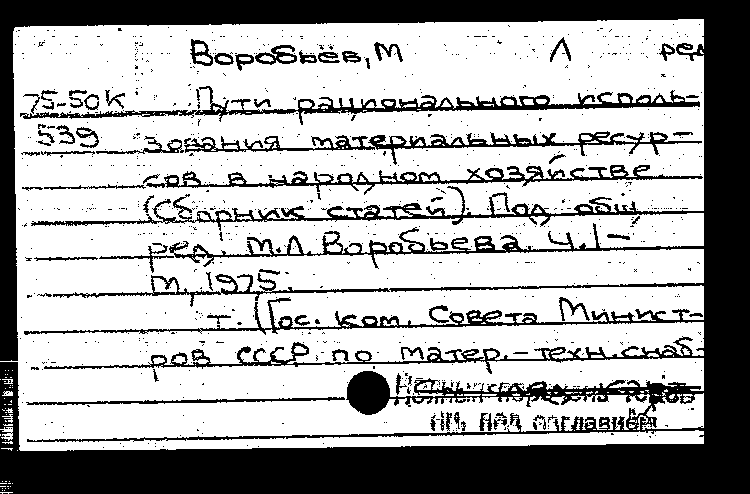 Воробьёв, М Л ред
75-50к Пути рационального исполь-
539 зования материальных ресур-
сов в народном хозяйстве.
(Сборник статей). Под общ.
ред. М.Л. Воробьева. Ч.1-
М., 1975.
т. (Гос. ком. Совета Минист-
ров СССР по матер.-техн. снаб-
заглавием